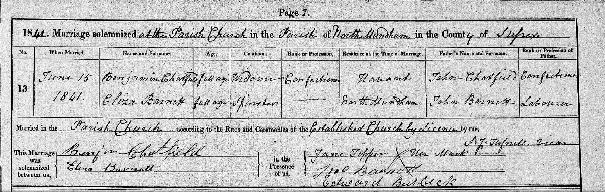 Page 7.
1841. Marriage solemnized at the Parish Church in the Parish of North Mundham in the County of Sussex
No. When Married Name and Surname Age Condition Rank or Profession Residence at the Time of Marriage Father's Name and Surname Rank or Profession of Father
13 June 15 Benjamin Chatfield full age Widower Confectioner Havant John Chatfield Confectioner
1841 Eliza Barnett full age Spinster — North Mundham John Barnett Labourer
Married in the Parish Church according to the Rites and Ceremonies of the Established Church by licence by me,
This Marriage was solemnized between us, Benjn Chatfield
Eliza Barnett
in the Presence of us, Jane Tipper X Her Mark
Barnett
Edward